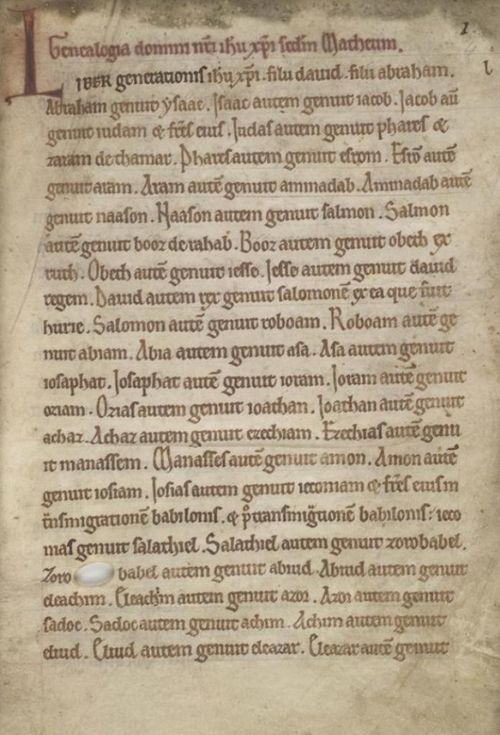 1
Genealogia domini nr̄i ihu xp̄i scdm̄ Matheum.
LIBER generationis ihu xp̄i. filii dauid. filii abraham.
Abraham genuit ysaac. Isaac autem genuit iacob. Iacob aū
genuit iudam & fr̄es eius. Iudas autem genuit phares &
zaram de thamar. Phares autem genuit esrom. Esrō autē
genuit aram. Aram autē genuit aminadab. Aminadab autē
genuit naason. Naason autem genuit salmon. Salmon
autē genuit booz de rahab. Booz autem genuit obeth ex
ruth. Obeth autē genuit iesse. Iesse autem genuit dauid
regem. Dauid autem rex genuit salomonē ex ea que fuit
hurie. Salomon autē genuit roboam. Roboam autē ge
nuit abiam. Abia autem genuit asa. Asa autem genuit
iosaphat. Iosaphat autē genuit ioram. Ioram autē genuit
oziam. Ozias autem genuit ioathan. Ioathan autē genuit
achaz. Achaz autem genuit ezechiam. Ezechias autē genu
it manassem. Manasses autē genuit amon. Amon autē
genuit iosiam. Iosias autem genuit ieconiam & fr̄es ei in
tͣnsmigrationē babilonis. & p̄ transmigͣtionē babilonis: ieco
nias genuit salathiel. Salathiel autem genuit zorobabel.
Zoro babel autem genuit abiud. Abiud autem genuit
eleachim. Eleachim autem genuit azor. Azor autem genuit
sadoc. Sadoc autem genuit achim. Achim autem genuit
eliud. Eliud autem genuit eleazar. Eleazar autē genuit